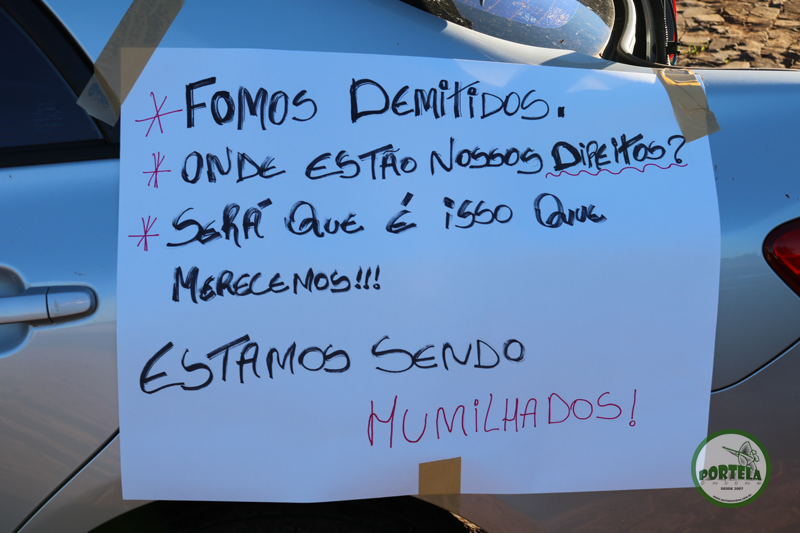 * FOMOS DEMITIDOS.
* ONDE ESTÃO NOSSOS DIREITOS?
* SERÁ QUE É ISSO QUE
MERECEMOS!!!
ESTAMOS SENDO
HUMILHADOS!
PORTELA
DESDE 2007